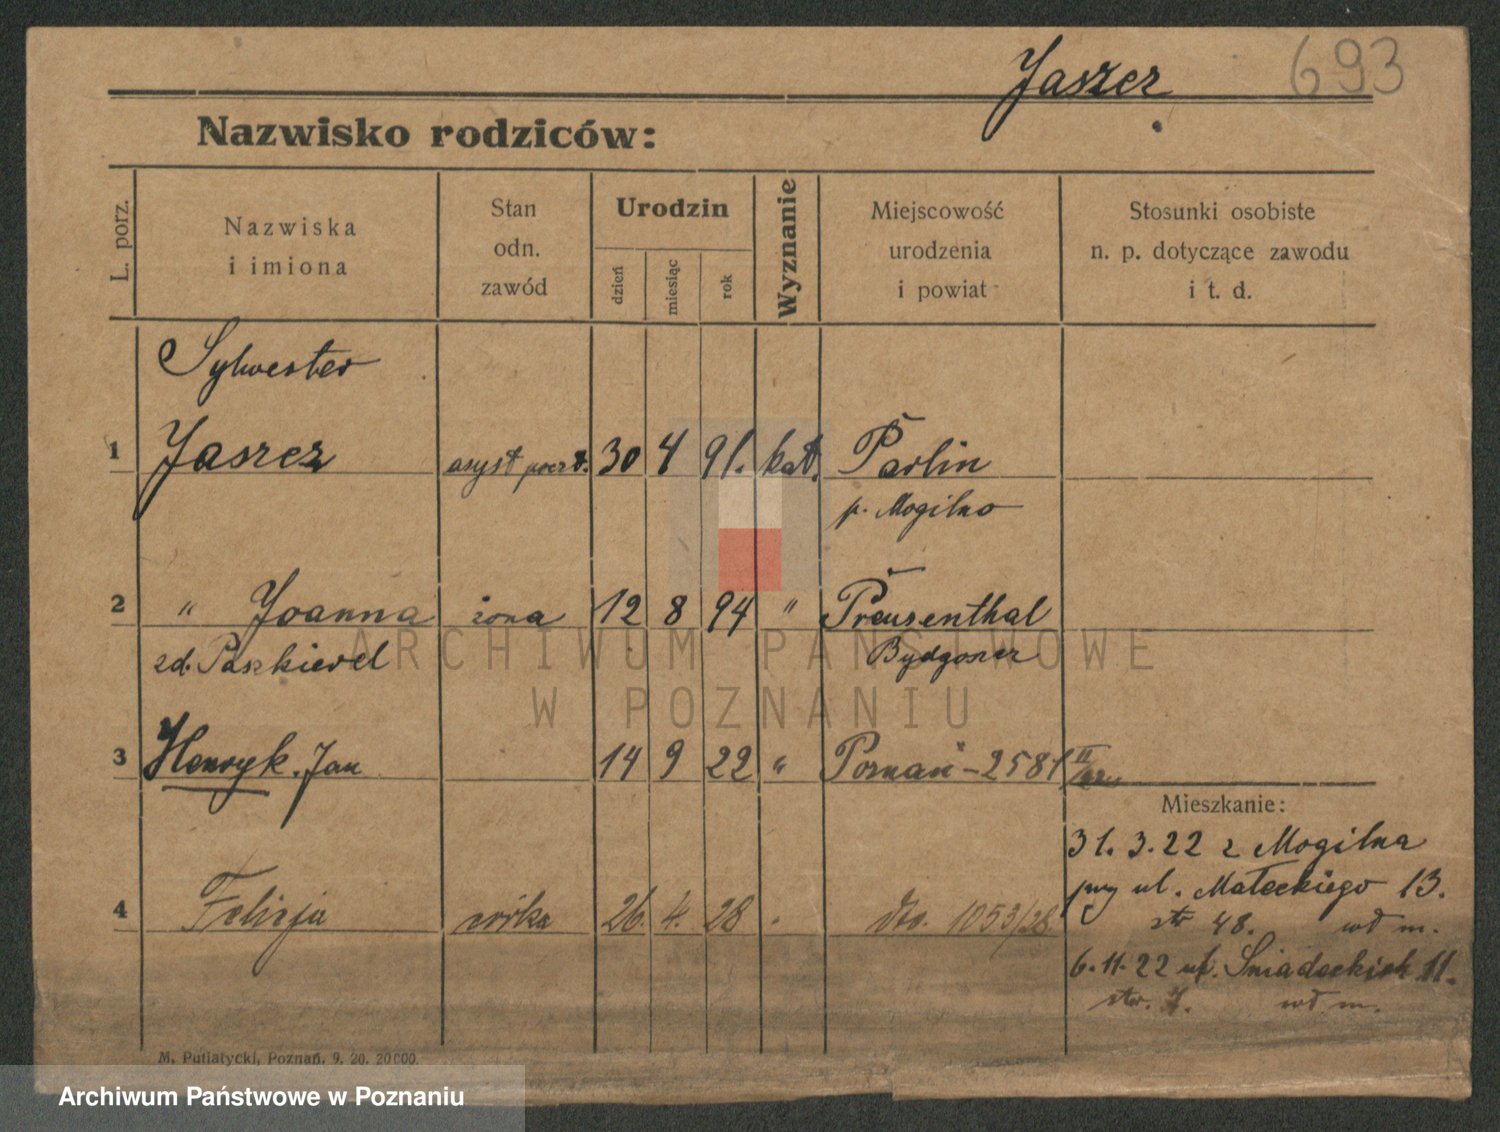 Jaszcz 693
Nazwisko rodziców:
L. porz.
Nazwiska
i imiona
Stan
odn.
zawód
Urodzin
dzień
miesiąc
rok
Wyznanie
Miejscowość
urodzenia
i powiat
Stosunki osobiste
n. p. dotyczące zawodu
i t. d.
Sylwester
1 Jaszcz asyst poczt. 30 4 91. kat. Parlin
p. Mogilno
2 " Joanna żona 12 8 94 " Preusenthal
zd. Paszkiewel Bydgoszcz
3 Henryk. Jan 14 9 22 " Poznań - 2581 II
Mieszkanie:
31. 3. 22 z Mogilna
przy ul. Małeckiego 13.
4 Felicja córka 26. 4. 28 dto. 1053/28.
str 48. wł m.
6. 11. 22 ul. Śniadeckich 11.
str. 7. wł m.
M. Putiatycki, Poznań, 9. 20. 20000.
ARCHIWUM PAŃSTWOWE
W POZNANIU
Archiwum Państwowe w Poznaniu